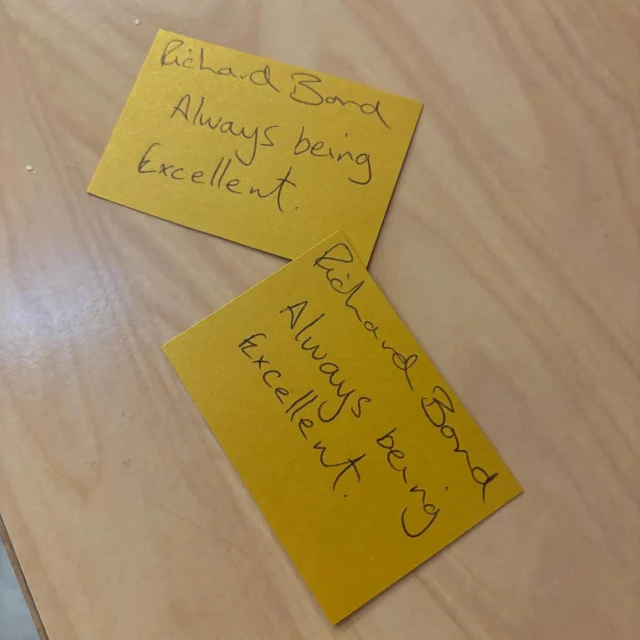 Richard Bond
Always being
Excellent.
Richard Bond
Always being
Excellent.